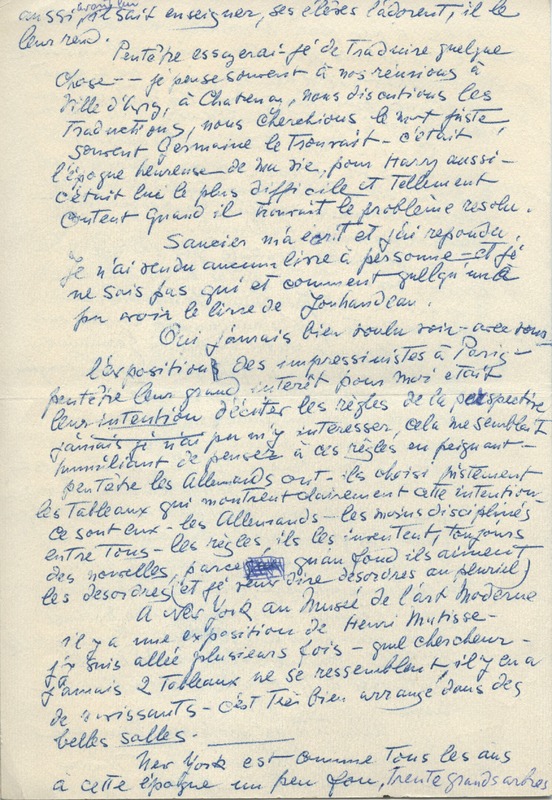 aussi, il sait enseigner, ses élèves l'adorent, il le
leur rend.
Peutêtre essayerai-je de traduire quelque
chose -- je pense souvent à nos réunions à
Ville d'Avry, à Chatenay, nous discutions les
Traductions, nous cherchions le mot juste
souvent Germaine le trouvait - c'était
l'époque heureuse de ma vie, pour Harry aussi -
c'était lui le plus difficile et tellement
content quand il trouvait le problème resolu.
Saucier m'a écrit et j'ai repondu,
je n'ai rendu aucun livre à personne - et je
ne sais pas qui et comment quelqu'un a
pu avoir le livre de Jouhandeau.
Oui j'aurais bien voulu voir - avec vous
l'exposition des impressionistes à Paris -
peutêtre leur grand intérêt pour moi était
leur intention d'éviter les règles de la perspective
jamais je n'ai pu m'y intéresser, cela me semblait
humiliant de penser à ces règles en peignant -
peutêtre les Allemands ont-ils choisi justement
les tableaux qui montrent clairement cette intention
ce sont eux - les Allemands - les moins disciplinés
entre tous - les règles, ils les inventent, toujours
des nouvelles, parce qu'au fond ils aiment
les desordres (et je veux dire desordres au pluriel)
A New York au Musée de l'art Moderne
il y a une exposition de Henri Matisse -
j'y suis allée plusieurs fois - quel chercheur -
jamais 2 tableaux ne se ressemblent, il y en a
de ravissants - c'est très bien arrangé dans des
belles salles.
New York est comme tous les ans
à cette l'époque un peu fou, trente grands arbres